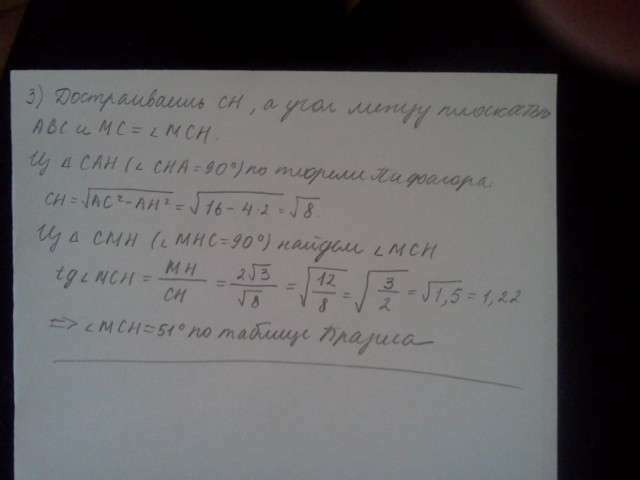 3) Достраиваешь CH, а угол между плоскостью
ABC и MC = ∠MCH.
Из △ CAH (∠ CHA = 90°) по теореме Пифагора:
CH = √(AC² - AH²) = √(16 - 4·2) = √8.
Из △ CMH (∠ MHC = 90°) найдем ∠MCH
tg∠MCH = MH/CH = 2√3/√8 = √(12/8) = √(3/2) = √1,5 = 1,22
=> ∠MCH = 51° по таблице Брадиса